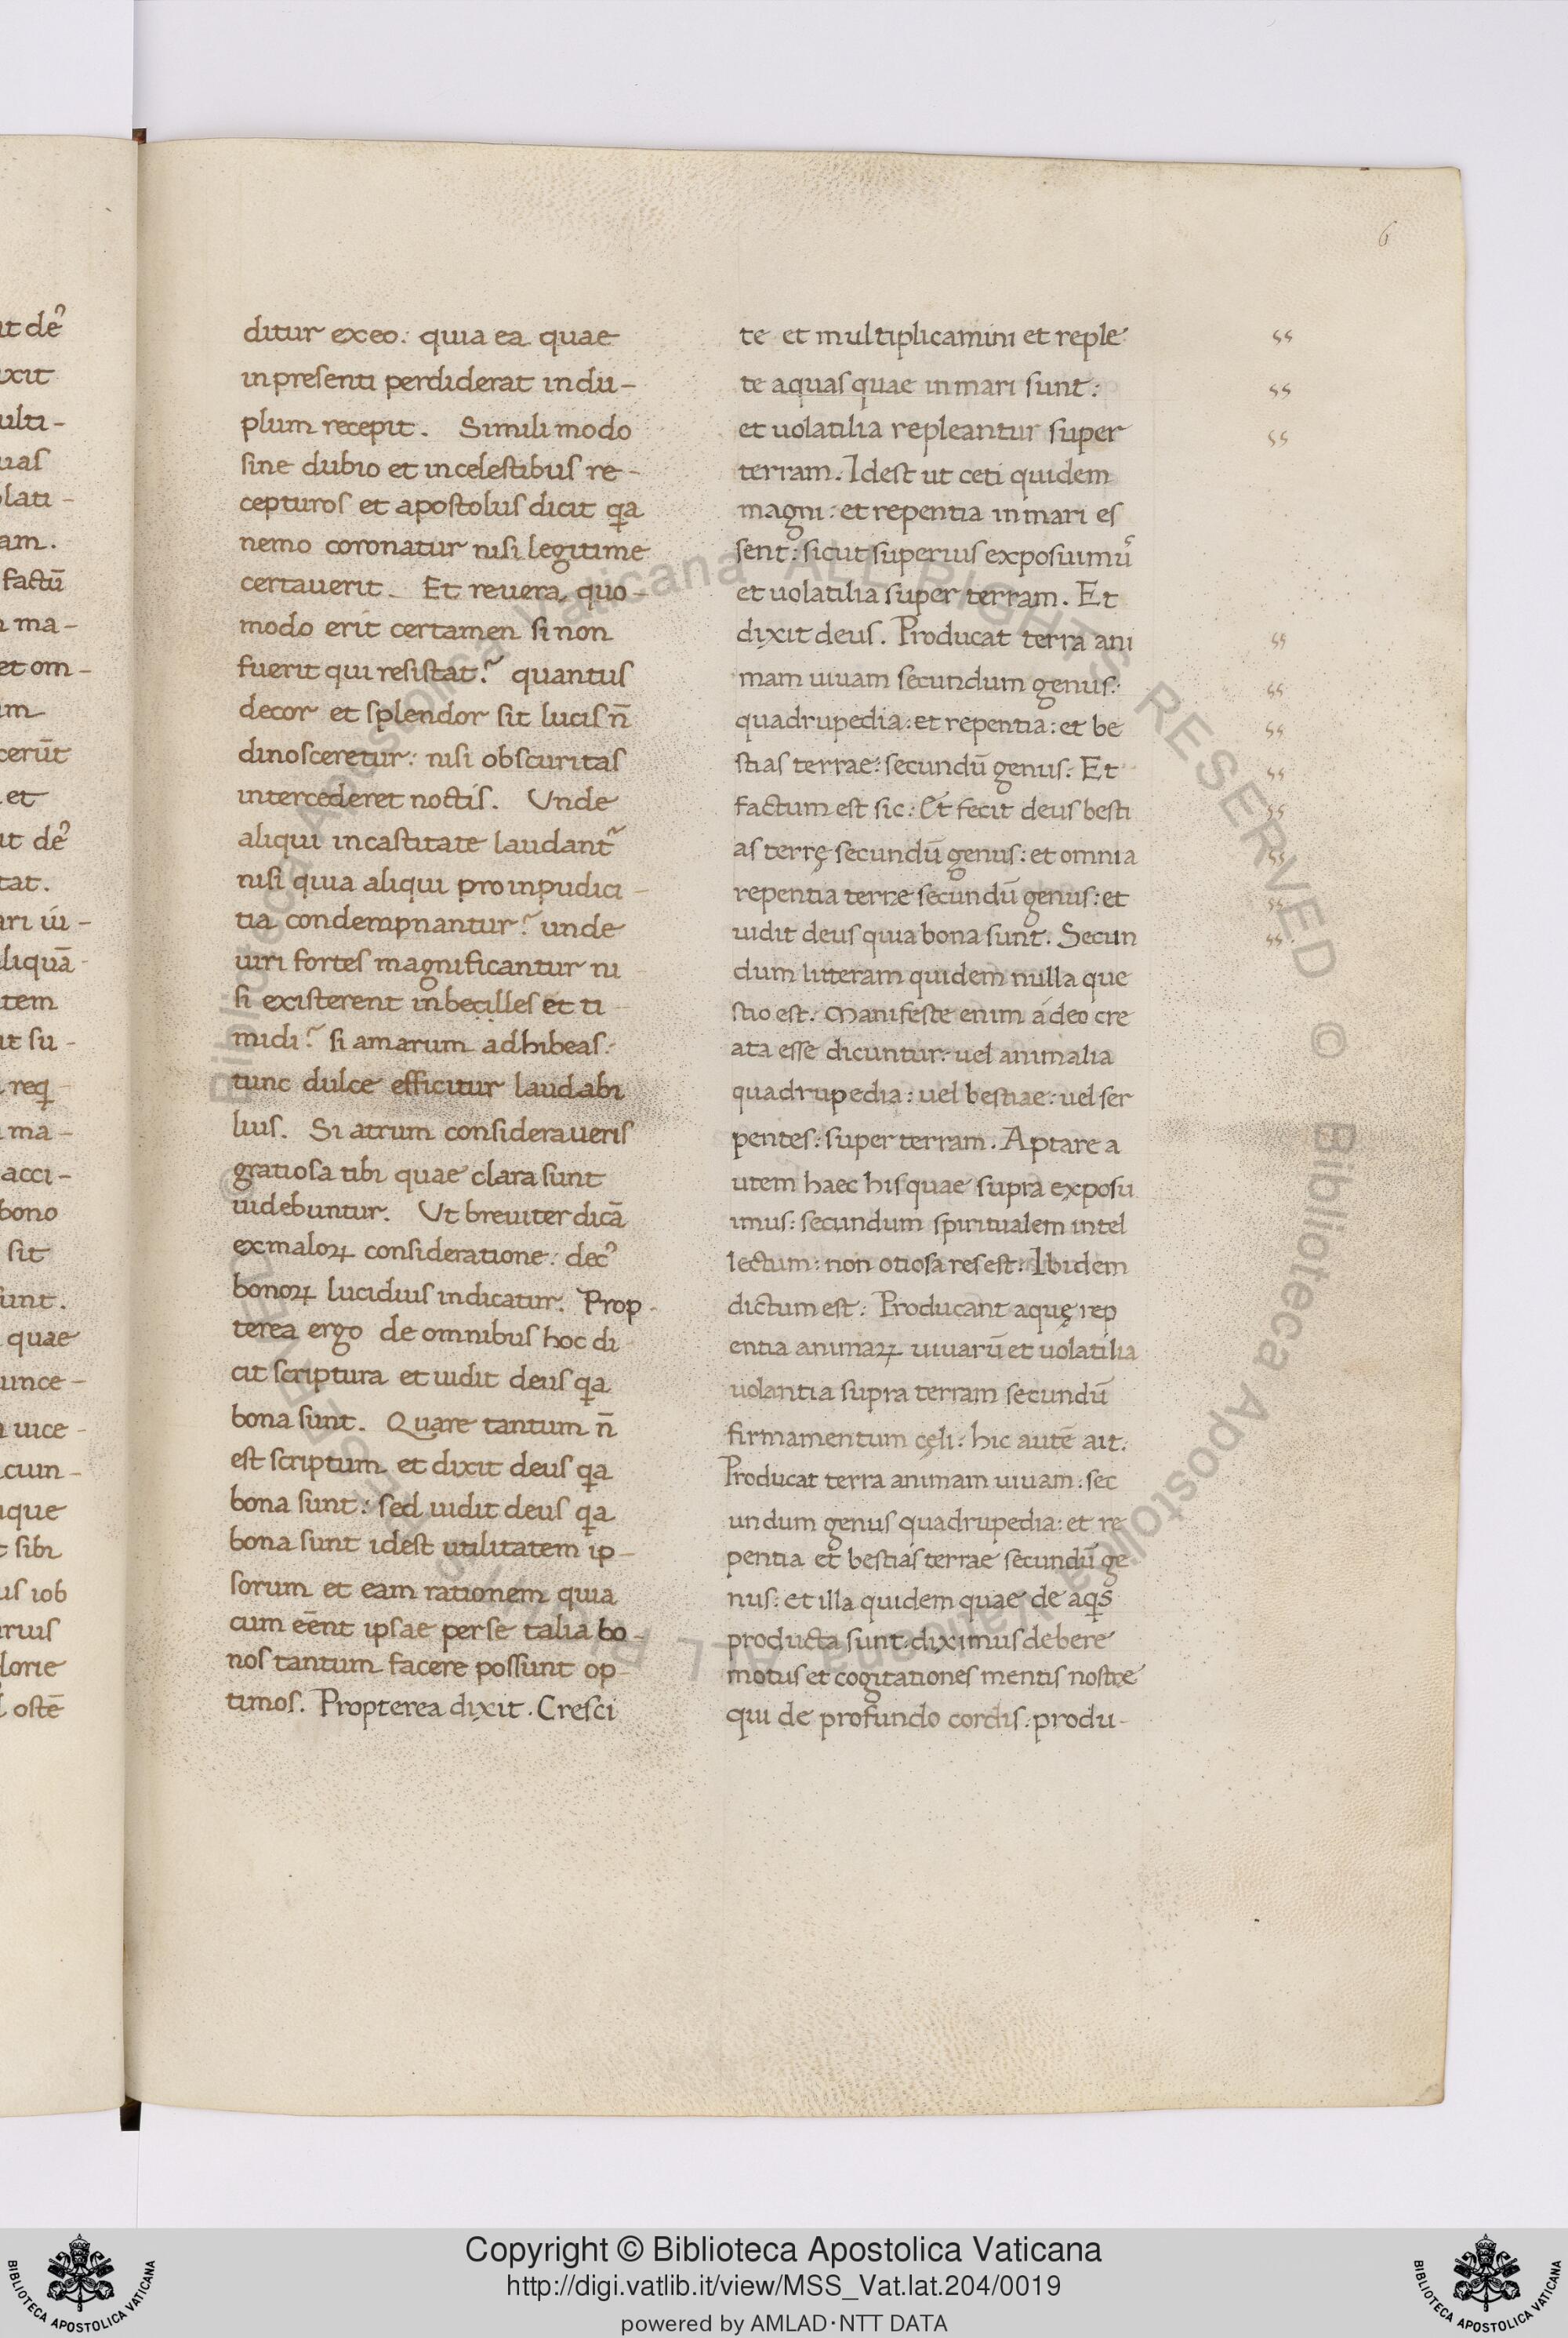 6
ditur ex eo: quia ea quae
in presenti perdiderat in du-
plum recepit. Simili modo
sine dubio et in celestibus re-
cepturos et apostolus dicit qa
nemo coronatur nisi legitime
certauerit. Et reuera quo-
modo erit certamen si non
fuerit qui resistat? quantus
decor et splendor sit lucis n̄
dinosceretur: nisi obscuritas
intercederet noctis. Unde
aliqui in castitate laudant᷑
nisi quia aliqui pro inpudici-
tia condempnantur? unde
uiri fortes magnificantur ni
si existerent inbecilles et ti
midi? si amarum adhibeas:
tunc dulce efficitur laudabi
lius. Si atrum consideraueris
gratiosa tibi quae clara sunt
uidebuntur. Ut breuiter dicā
ex maloꝝ consideratione: dec᾿
bonoꝝ lucidius indicatur. Prop-
terea ergo de omnibus hoc di
cit scriptura et uidit deus qa
bona sunt. Quare tantum n̄
est scriptum et dixit deus qa
bona sunt: sed uidit deus qa
bona sunt idest utilitatem ip-
sorum et eam rationem quia
cum eēnt ipsae per se talia bo-
nos tantum facere possunt op-
timos. Propterea dixit. Cresci
te et multiplicamini et reple
te aquas quae in mari sunt:
et uolatilia repleantur super
terram. Idest ut ceti quidem
magni: et repentia in mari es
sent: sicut superius exposuimu᷒
et uolatilia super terram. Et
dixit deus. Producat terra ani
mam uiuam secundum genus:
quadrupedia: et repentia: et be
stias terrae: secundū genus. Et
factum est sic: Et fecit deus besti
as terrę secundū genus: et omnia
repentia terrae secundū genus: et
uidit deus quia bona sunt. Secun
dum litteram quidem nulla que
stio est. Manifeste enim á deo cre
ata esse dicuntur: uel animalia
quadrupedia: uel bestiae: uel ser
pentes: super terram. Aptare a
utem haec his quae supra exposu
imus: secundum spiritualem intel
lectum: non otiosa res est: Ibidem
dictum est: Producant aquę rep
entia animaꝝ uiuarū et uolatilia
uolantia supra terram secundū
firmamentum cęli: hic autē ait.
Producat terra animam uiuam: sec
undum genus quadrupedia: et re
pentia et bestias terrae secundū ge
nus: et illa quidem quae de aqs
producta sunt: diximus debere
motus et cogitationes mentis nostre
qui de profundo cordis: produ-
Copyright © Biblioteca Apostolica Vaticana
http://digi.vatlib.it/view/MSS_Vat.lat.204/0019
powered by AMLAD·NTT DATA